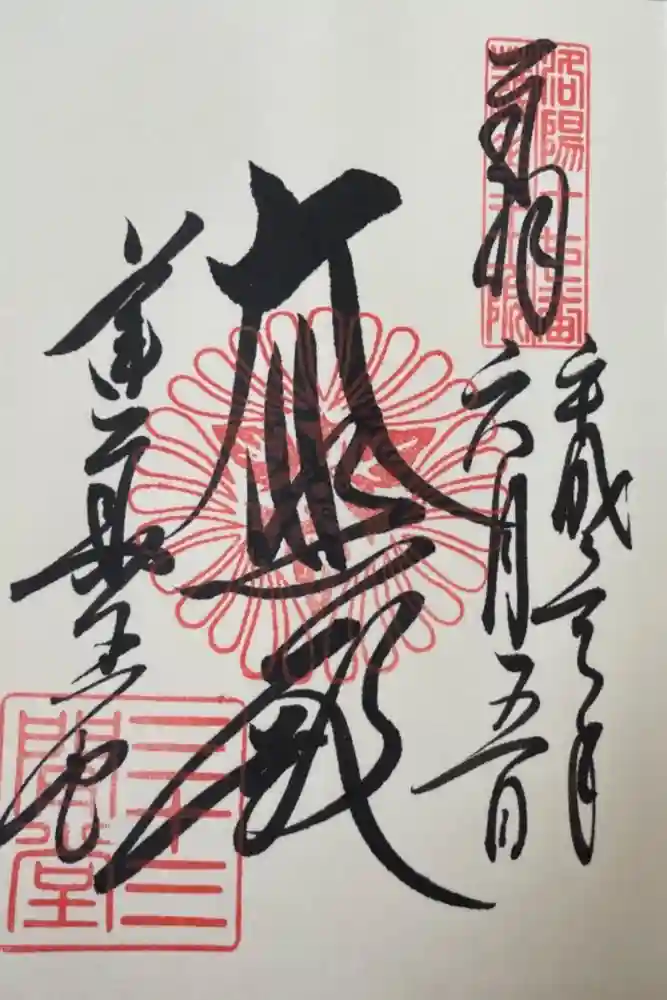 洛陽十七番
奉拝
平成
年
六月五日
大悲殿
蓮華王院
三十三
間堂